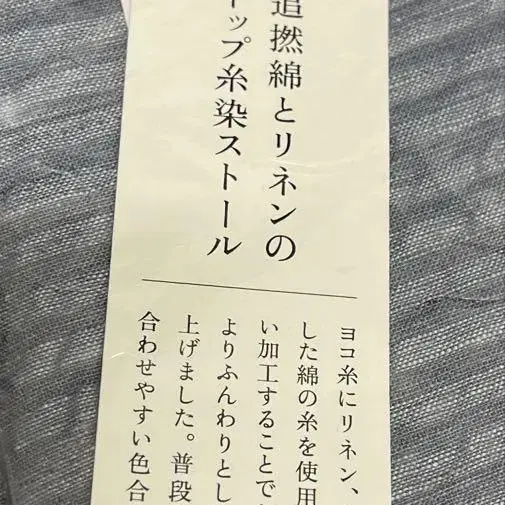 追撚綿とリネンの
ップ糸染ストール
ヨコ糸にリネン、
した綿の糸を使用
い加工することで
よりふんわりとし
上げました。普段
合わせやすい色合